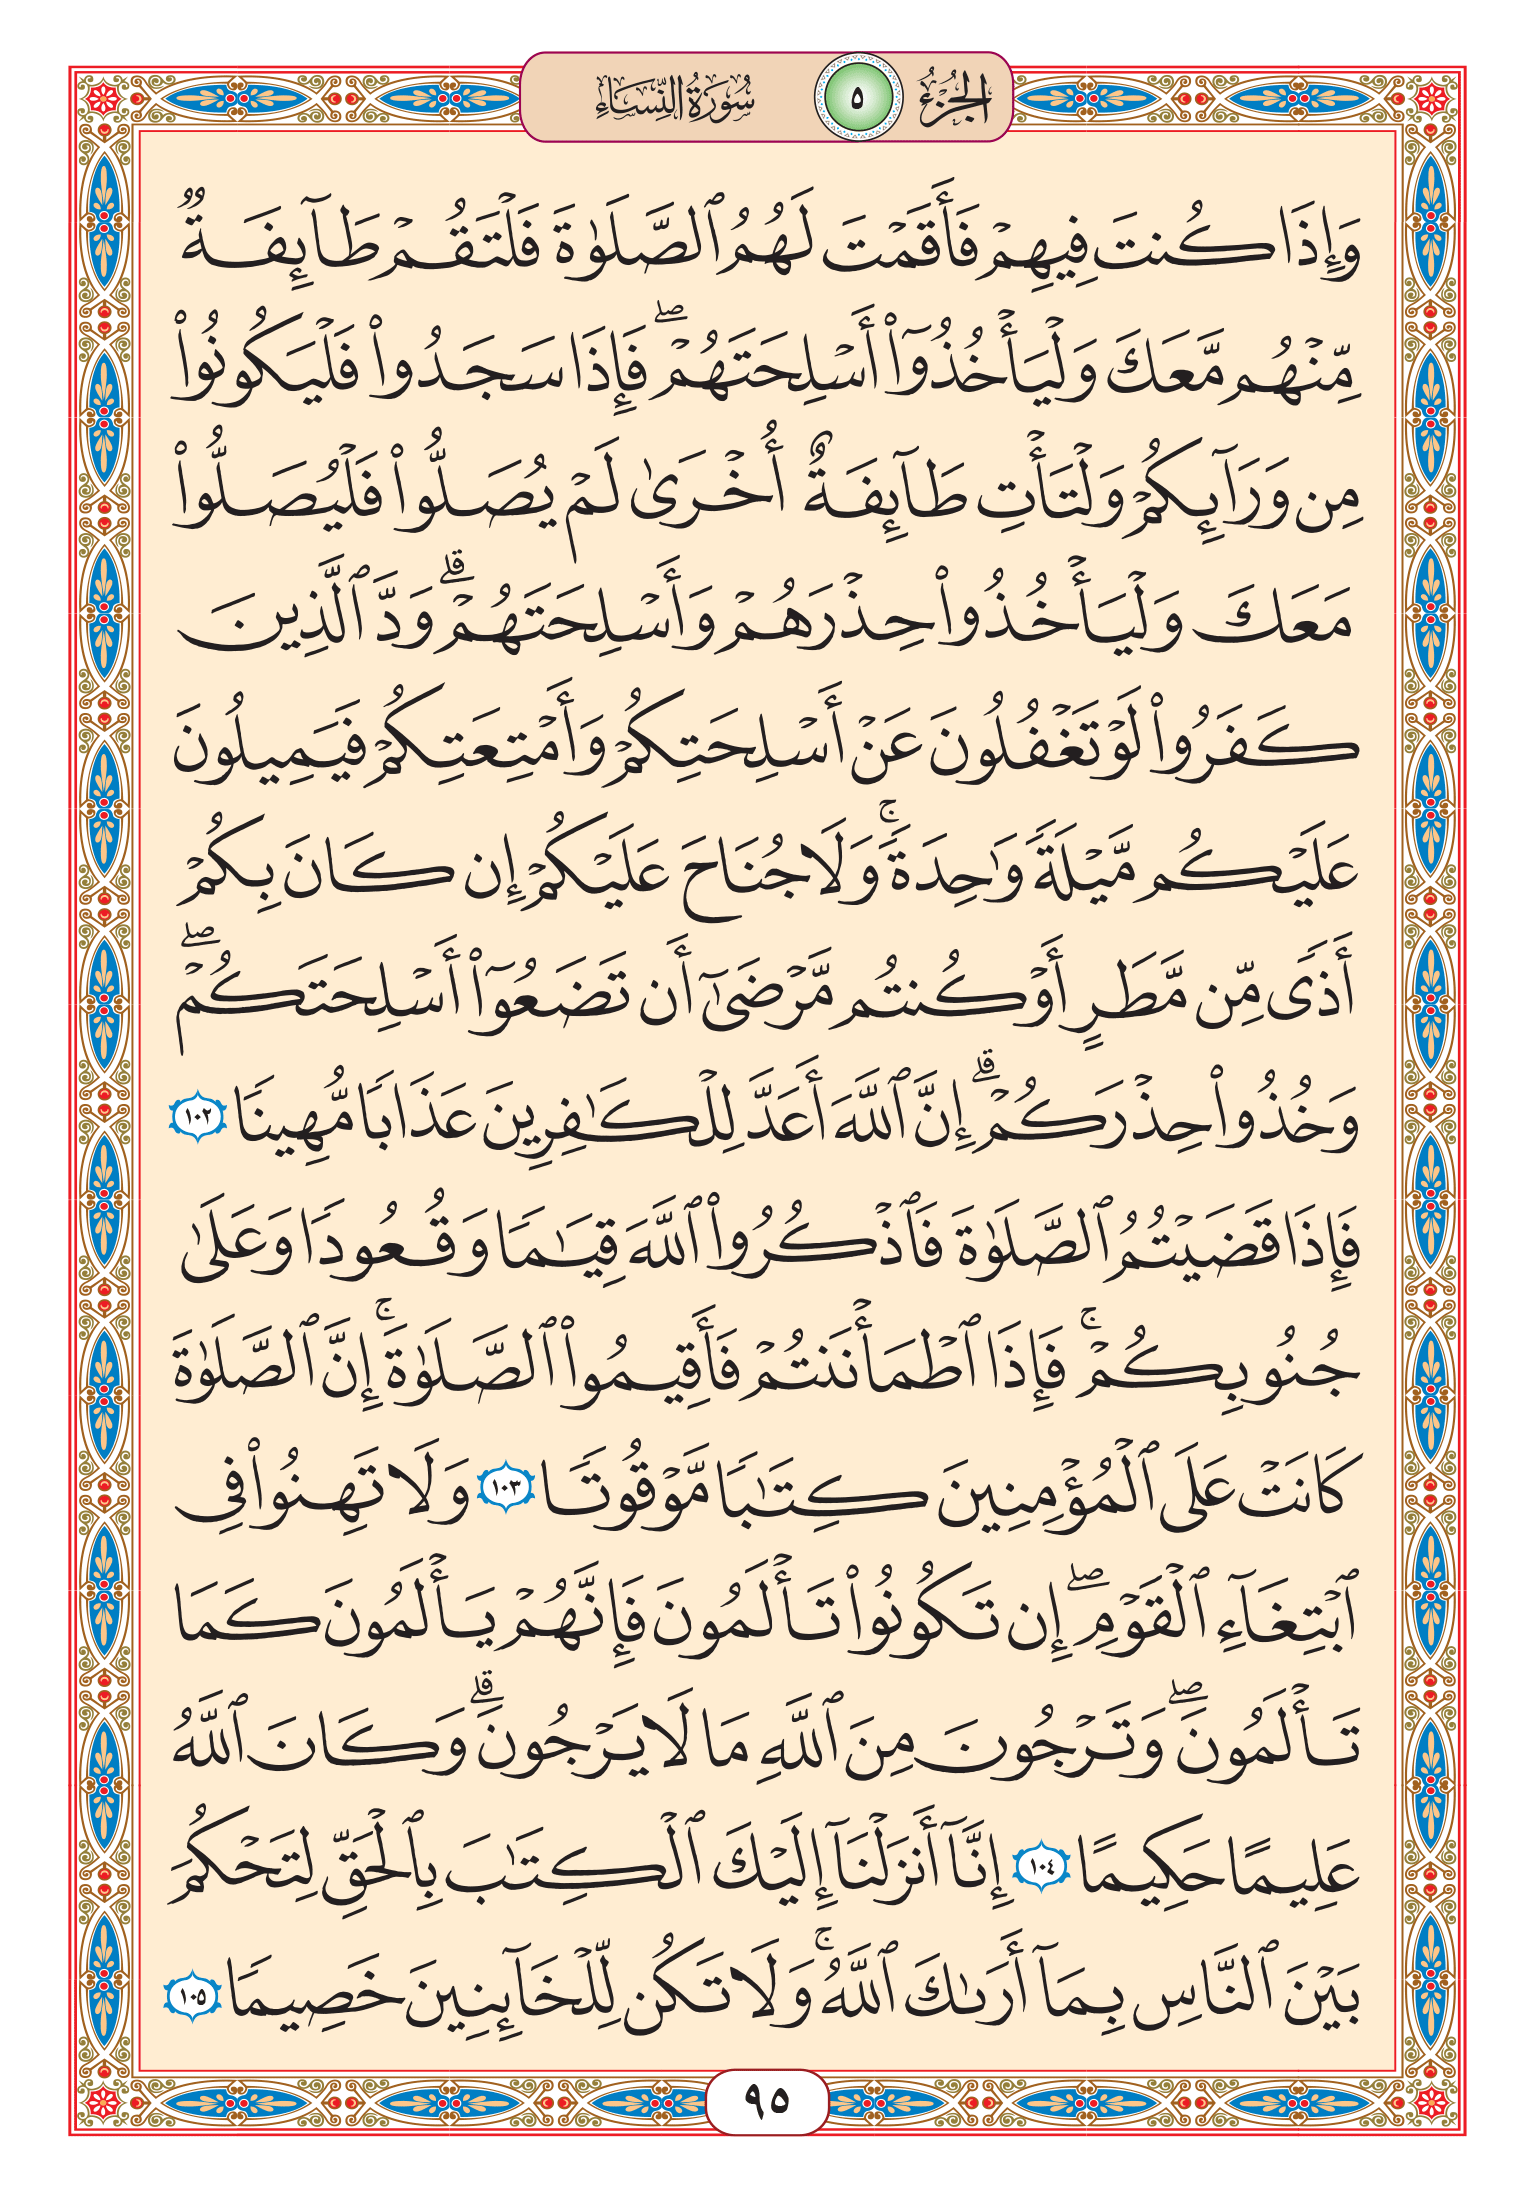 الجزء ٥ سورة النساء
وَإِذَا كُنتَ فِيهِمْ فَأَقَمْتَ لَهُمُ ٱلصَّلَوٰةَ فَلْتَقُمْ طَآئِفَةٌ
مِّنْهُم مَّعَكَ وَلْيَأْخُذُوٓا۟ أَسْلِحَتَهُمْ ۖ فَإِذَا سَجَدُوا۟ فَلْيَكُونُوا۟
مِن وَرَآئِكُمْ وَلْتَأْتِ طَآئِفَةٌ أُخْرَىٰ لَمْ يُصَلُّوا۟ فَلْيُصَلُّوا۟
مَعَكَ وَلْيَأْخُذُوا۟ حِذْرَهُمْ وَأَسْلِحَتَهُمْ ۗ وَدَّ ٱلَّذِينَ
كَفَرُوا۟ لَوْ تَغْفُلُونَ عَنْ أَسْلِحَتِكُمْ وَأَمْتِعَتِكُمْ فَيَمِيلُونَ
عَلَيْكُم مَّيْلَةً وَٰحِدَةً ۚ وَلَا جُنَاحَ عَلَيْكُمْ إِن كَانَ بِكُمْ
أَذًى مِّن مَّطَرٍ أَوْ كُنتُم مَّرْضَىٰٓ أَن تَضَعُوٓا۟ أَسْلِحَتَكُمْ ۖ
وَخُذُوا۟ حِذْرَكُمْ ۗ إِنَّ ٱللَّهَ أَعَدَّ لِلْكَـٰفِرِينَ عَذَابًا مُّهِينًا ١٠٢
فَإِذَا قَضَيْتُمُ ٱلصَّلَوٰةَ فَٱذْكُرُوا۟ ٱللَّهَ قِيَـٰمًا وَقُعُودًا وَعَلَىٰ
جُنُوبِكُمْ ۚ فَإِذَا ٱطْمَأْنَنتُمْ فَأَقِيمُوا۟ ٱلصَّلَوٰةَ ۚ إِنَّ ٱلصَّلَوٰةَ
كَانَتْ عَلَى ٱلْمُؤْمِنِينَ كِتَـٰبًا مَّوْقُوتًا ١٠٣ وَلَا تَهِنُوا۟ فِى
ٱبْتِغَآءِ ٱلْقَوْمِ ۖ إِن تَكُونُوا۟ تَأْلَمُونَ فَإِنَّهُمْ يَأْلَمُونَ كَمَا
تَأْلَمُونَ ۖ وَتَرْجُونَ مِنَ ٱللَّهِ مَا لَا يَرْجُونَ ۗ وَكَانَ ٱللَّهُ
عَلِيمًا حَكِيمًا ١٠٤ إِنَّآ أَنزَلْنَآ إِلَيْكَ ٱلْكِتَـٰبَ بِٱلْحَقِّ لِتَحْكُمَ
بَيْنَ ٱلنَّاسِ بِمَآ أَرَىٰكَ ٱللَّهُ ۚ وَلَا تَكُن لِّلْخَآئِنِينَ خَصِيمًا ١٠٥
٩٥